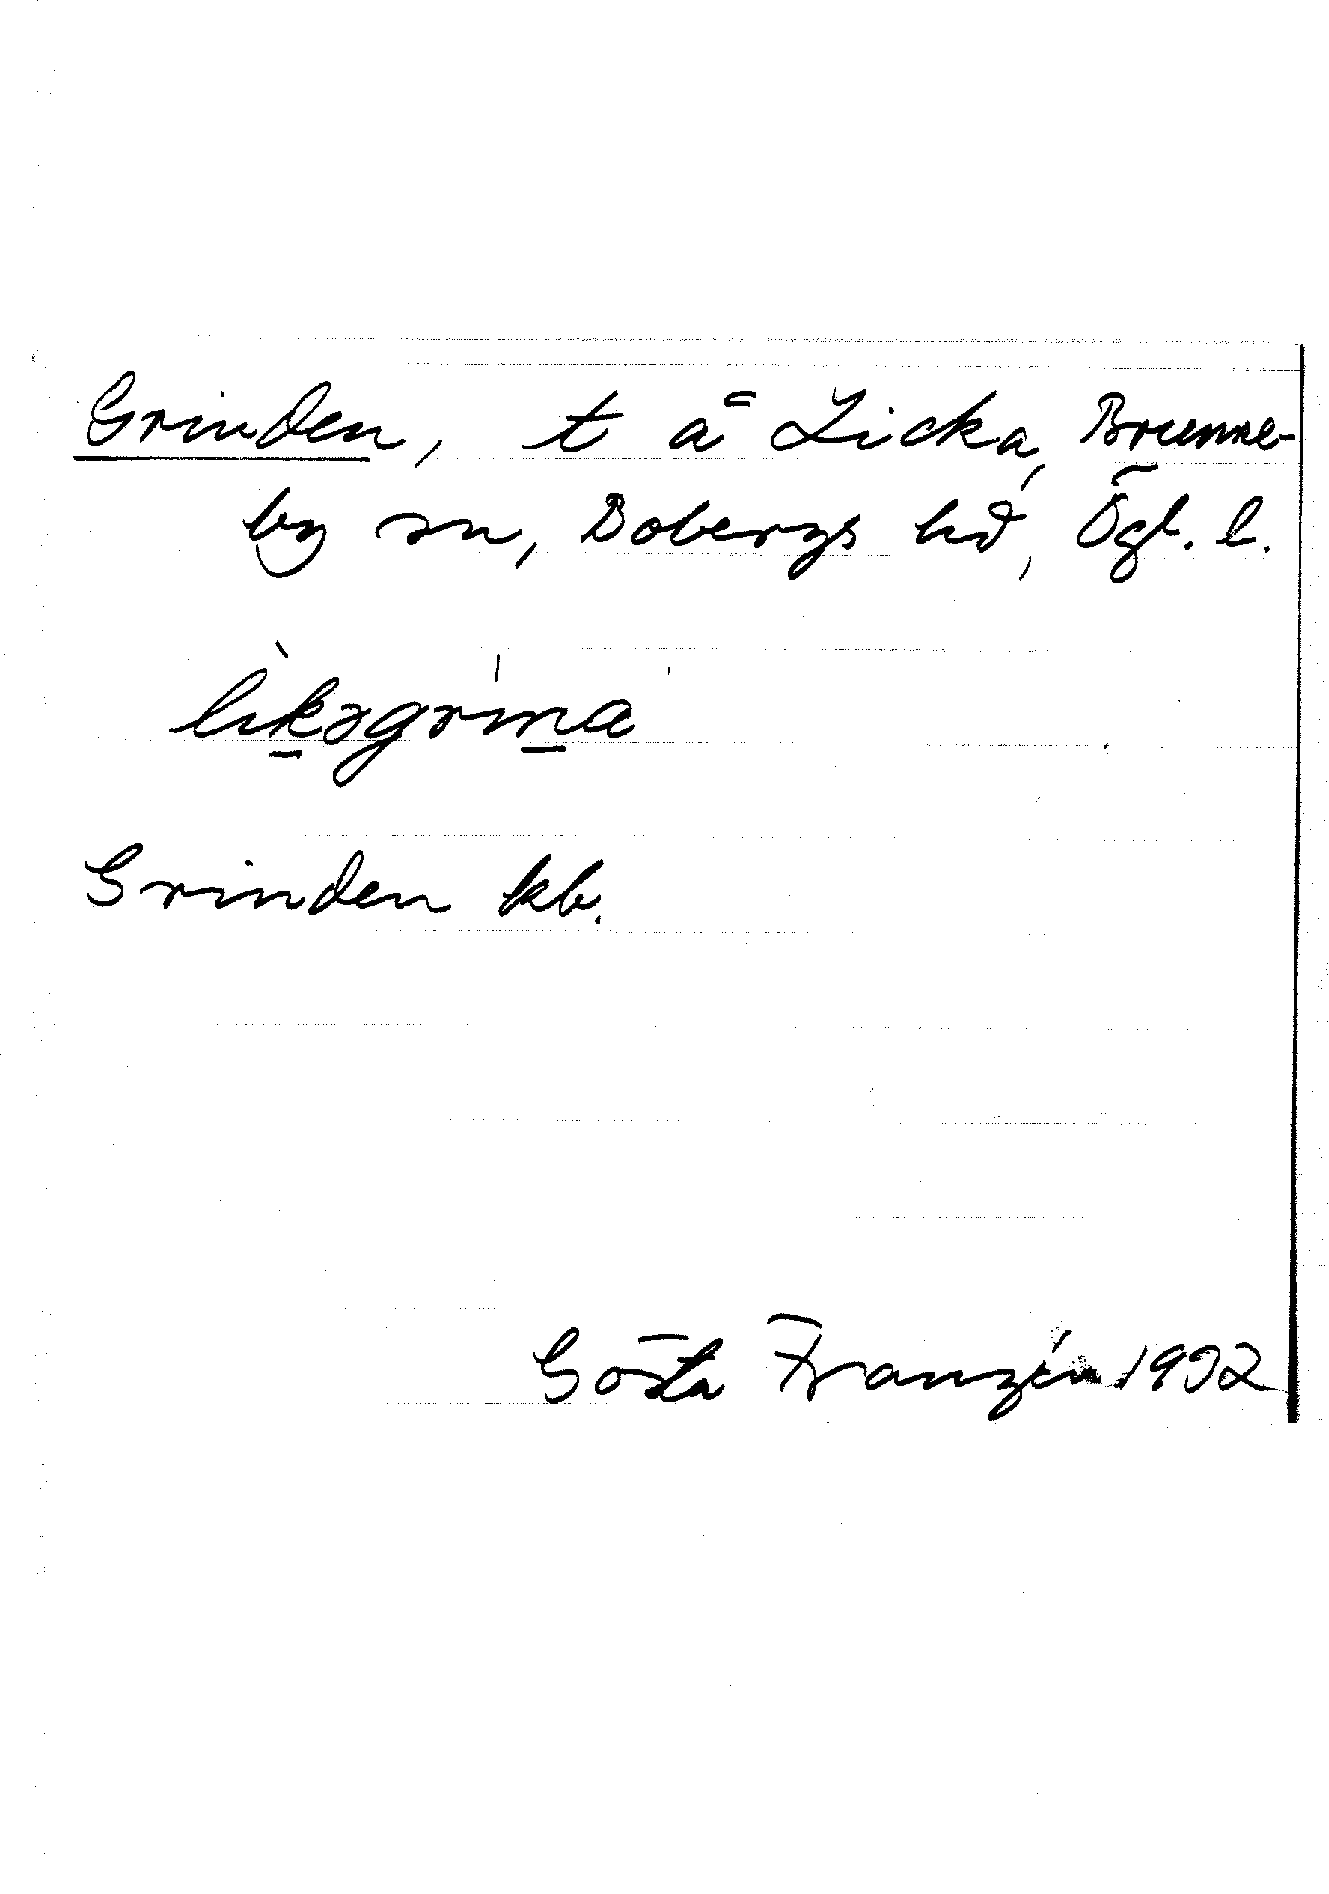 Grinden, t å Licka, Brunne-
by sn, Bobergs hd, Ögl. l.
lìkəgrina
Grinden kb.
Gösta Franzén 1932